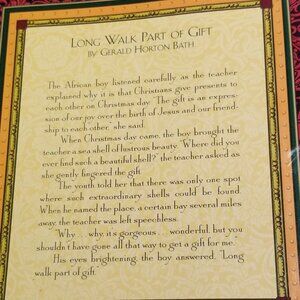 LONG WALK PART OF GIFT
BY GERALD HORTON BATH
The African boy listened carefully as the teacher
explained why it is that Christians give presents to
each other on Christmas day. The gift is an expres-
sion of our joy over the birth of Jesus and our friend-
ship to each other, she said.
When Christmas day came, the boy brought the
teacher a sea shell of lustrous beauty. "Where did you
ever find such a beautiful shell?" the teacher asked as
she gently fingered the gift.
The youth told her that there was only one spot
where such extraordinary shells could be found.
When he named the place, a certain bay several miles
away, the teacher was left speechless.
"Why . . . why, it's gorgeous . . . wonderful, but you
shouldn't have gone all that way to get a gift for me."
His eyes brightening, the boy answered, "Long
walk part of gift."